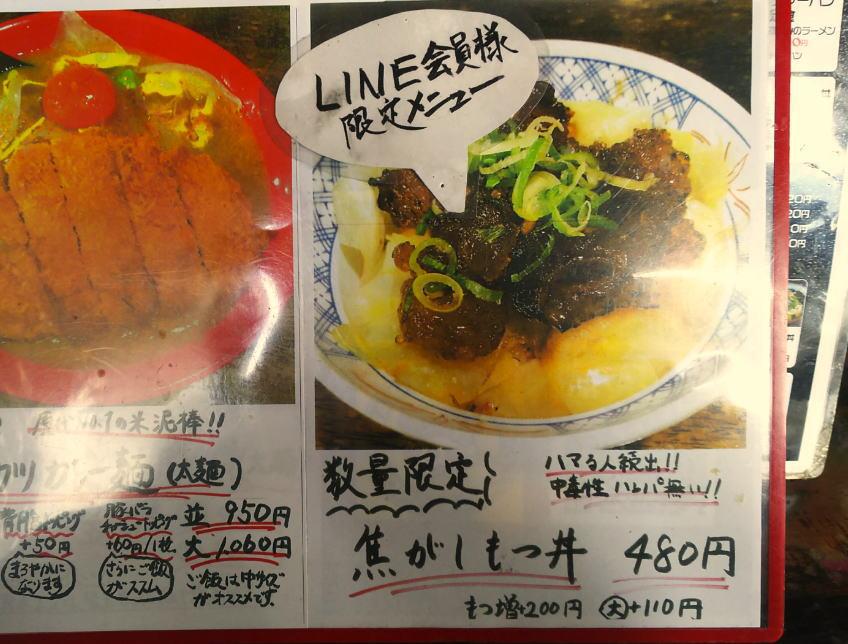 LINE会員様
限定メニュー
の米泥棒!!
カツカレー麺(太麺)
背脂トッピング
+50円
まろやかに
なります
豚バラ
チャーシュートッピング
+60円/1枚
さらにご飯
がススム
並 950円
大 1,060円
ご飯は中サイズ
がオススメです。
数量限定
ハマる人続出!!
中毒性ハンパ無い!!
焦がしもつ丼 480円
もつ増+200円 大+110円
のラーメン